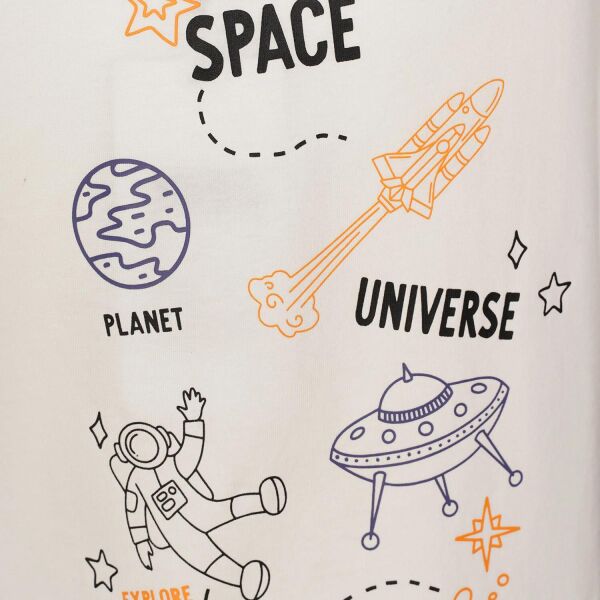 SPACE
PLANET
UNIVERSE
EXPLORE